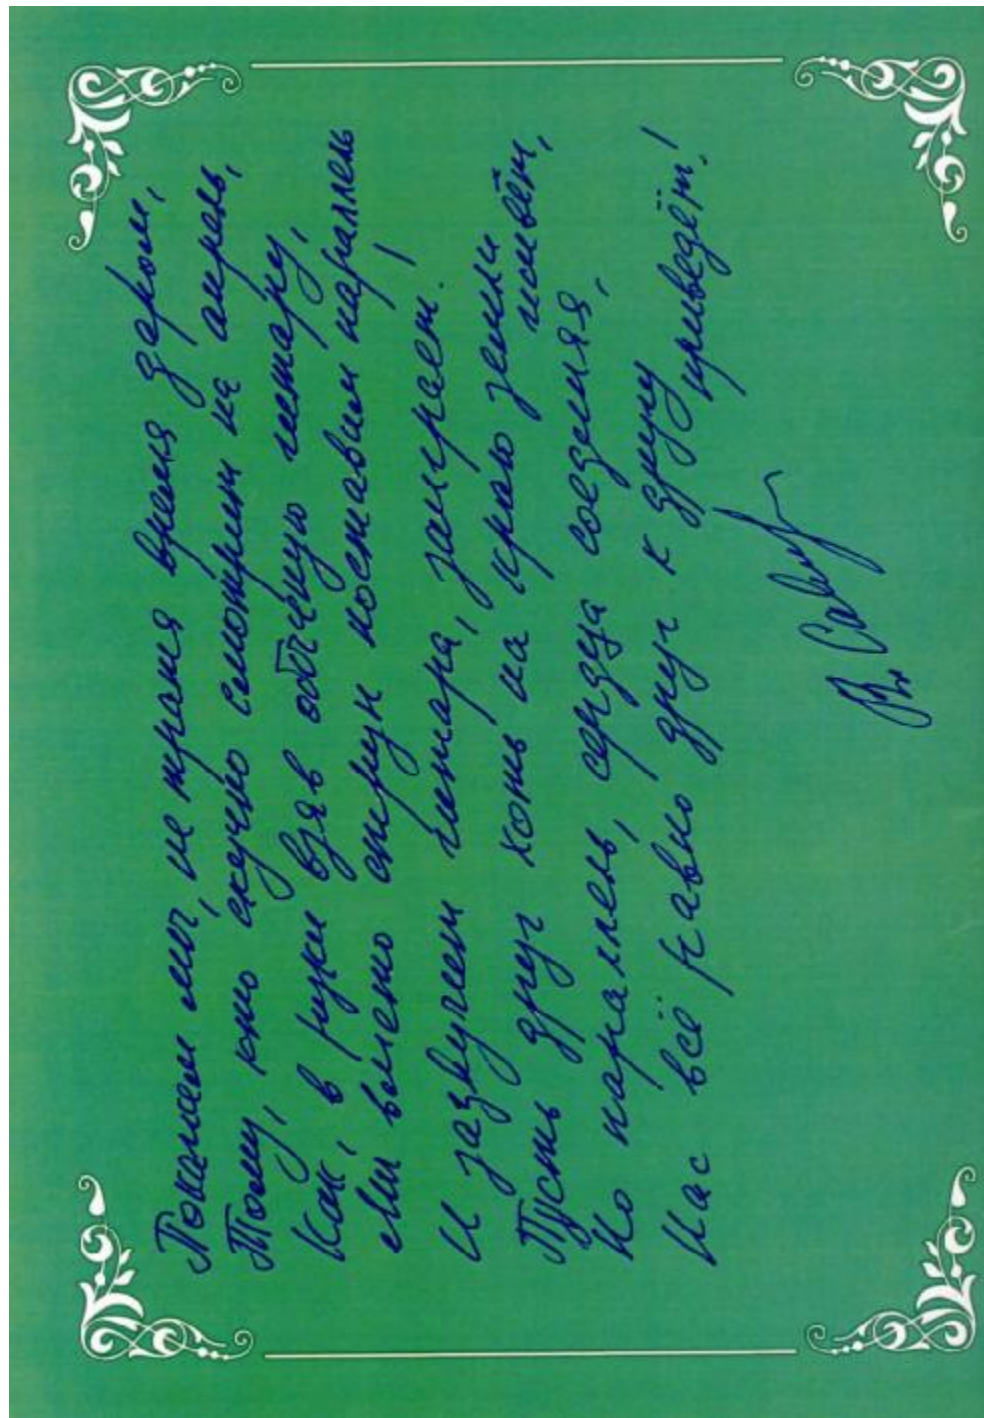 Покажем мы, не тратя время даром,
Тому, кто скучно смотрит на апрель,
Как, в руки взяв обычную гитару,
Мы вместо струн поставим параллель!
И зазвучит гитара, заиграет.
Пусть друг хоть на краю земли живёт,
Но параллель, сердца соединяя,
Нас всё равно друг к другу приведёт!